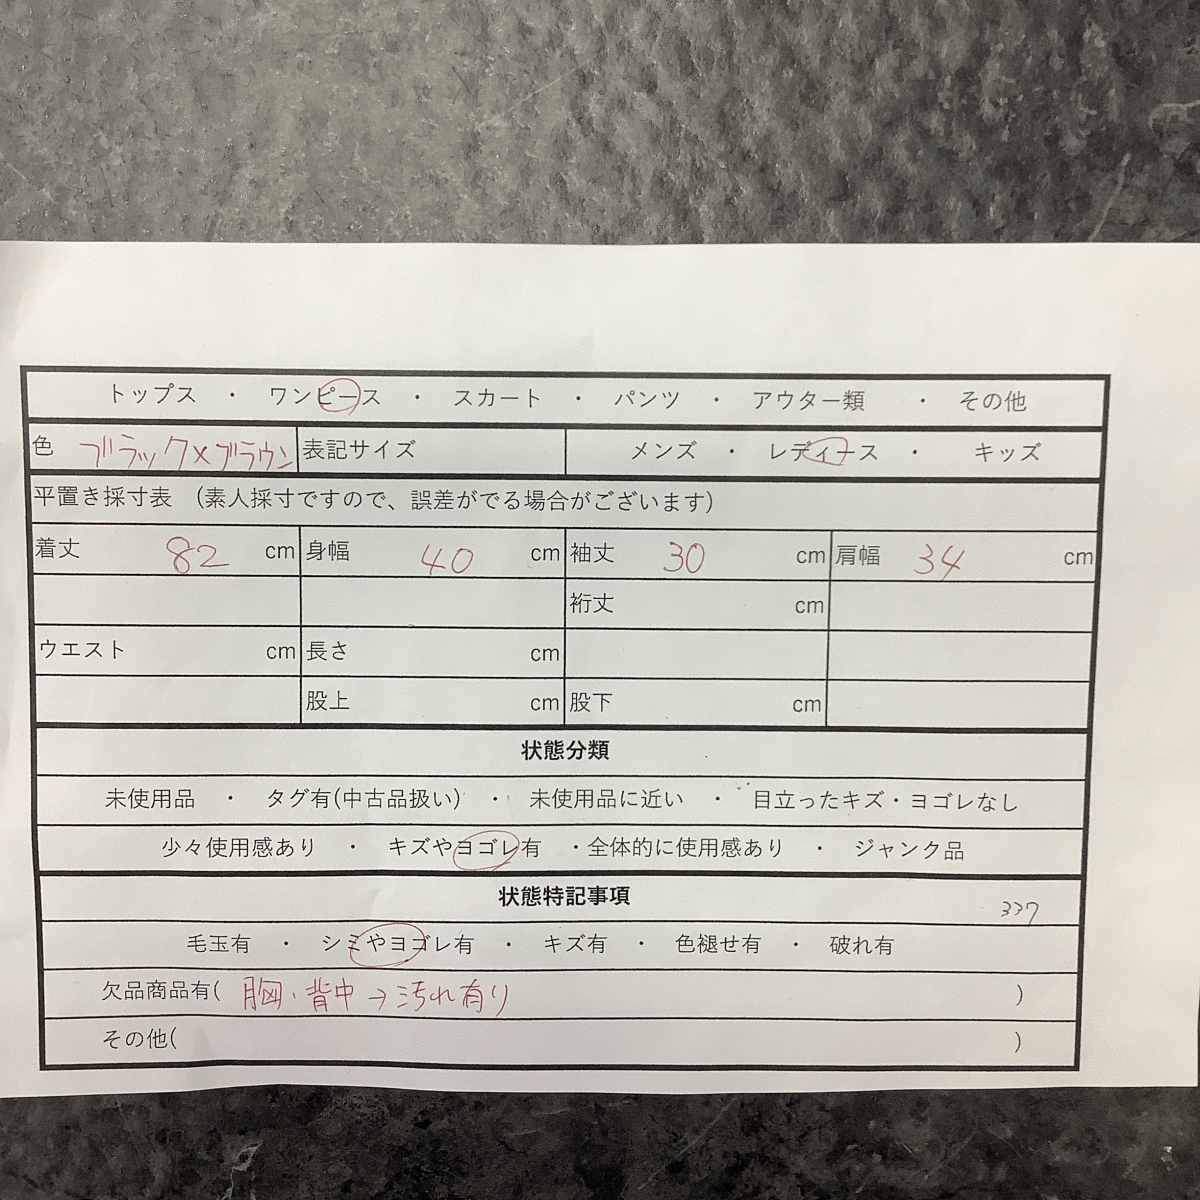 トップス ・ ワンピース ・ スカート ・ パンツ ・ アウター類 ・ その他
色 ブラック×ブラウン 表記サイズ メンズ ・ レディース ・ キッズ
平置き採寸表 (素人採寸ですので、誤差がでる場合がございます)
着丈 82 cm 身幅 40 cm 袖丈 30 cm 肩幅 34 cm
裄丈 cm
ウエスト cm 長さ cm
股上 cm 股下 cm
状態分類
未使用品 ・ タグ有(中古品扱い) ・ 未使用品に近い ・ 目立ったキズ・ヨゴレなし
少々使用感あり ・ キズやヨゴレ有 ・全体的に使用感あり ・ ジャンク品
状態特記事項
337
毛玉有 ・ シミやヨゴレ有 ・ キズ有 ・ 色褪せ有 ・ 破れ有
欠品商品有( 胸、背中→汚れ有り )
その他( )